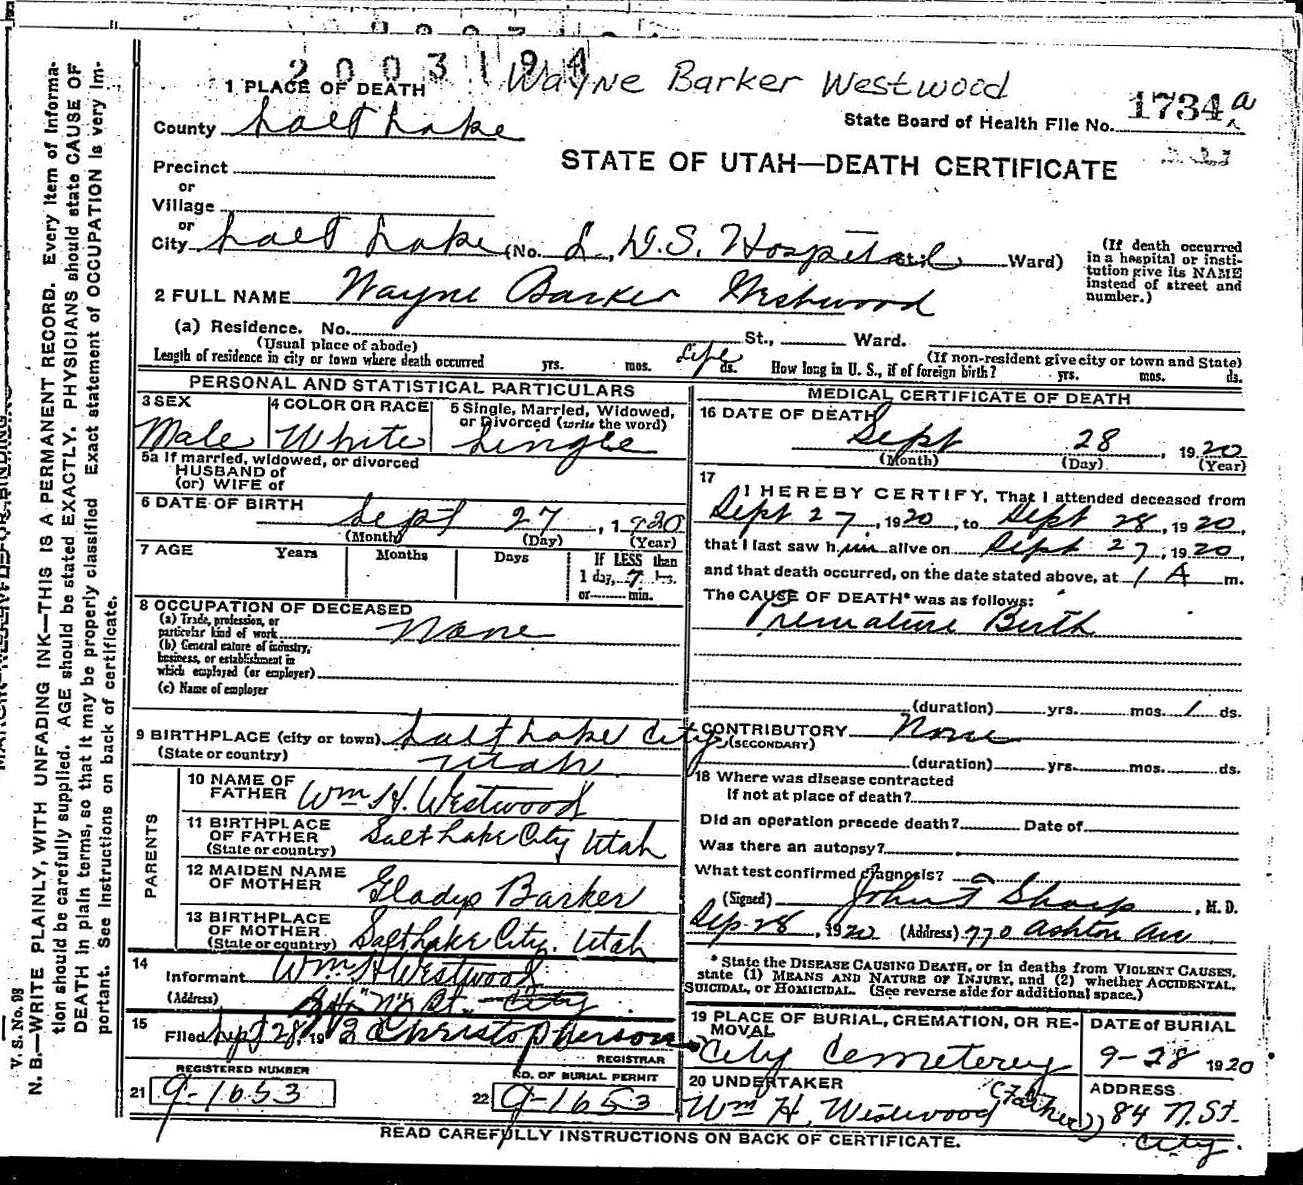 2003194
Wayne Barker Westwood
1 PLACE OF DEATH
1734 a
State Board of Health File No.
County Salt Lake
STATE OF UTAH—DEATH CERTIFICATE
Precinct
or
Village
or
City Salt Lake (No. L.D.S. Hospital Ward)
(If death occurred in a hospital or institution give its NAME instead of street and number.)
2 FULL NAME Wayne Barker Westwood
(a) Residence. No. St., Ward.
(Usual place of abode) (If non-resident give city or town and State)
Length of residence in city or town where death occurred yrs. mos. Life ds. How long in U. S., if of foreign birth? yrs. mos. ds.
PERSONAL AND STATISTICAL PARTICULARS
3 SEX Male
4 COLOR OR RACE White
5 Single, Married, Widowed, or Divorced (write the word) Single
5a If married, widowed, or divorced
HUSBAND of
(or) WIFE of
6 DATE OF BIRTH Sept 27, 1920
(Month) (Day) (Year)
7 AGE Years Months Days If LESS than
1 day, 7 hrs.
or min.
8 OCCUPATION OF DECEASED
(a) Trade, profession, or particular kind of work None
(b) General nature of industry, business, or establishment in which employed (or employer)
(c) Name of employer
9 BIRTHPLACE (city or town) Salt Lake City
(State or country) Utah
PARENTS
10 NAME OF FATHER Wm H. Westwood
11 BIRTHPLACE OF FATHER Salt Lake City Utah
(State or country)
12 MAIDEN NAME OF MOTHER Gladys Barker
13 BIRTHPLACE OF MOTHER Salt Lake City, Utah
(State or country)
14
Informant Wm H Westwood
(Address) 84 "N" St. City
15
Filed Sept 28, 19 Christopherson
REGISTRAR
REGISTERED NUMBER
21 9-1653
NO. OF BURIAL PERMIT
22 9-1653
MEDICAL CERTIFICATE OF DEATH
16 DATE OF DEATH
Sept 28, 1920
(Month) (Day) (Year)
17
I HEREBY CERTIFY, That I attended deceased from
Sept 27, 1920, to Sept 28, 1920,
that I last saw him alive on Sept 27, 1920,
and that death occurred, on the date stated above, at 1 A m.
The CAUSE OF DEATH* was as follows:
Premature Birth
(duration) yrs. mos. 1 ds.
CONTRIBUTORY None
(SECONDARY)
(duration) yrs. mos. ds.
18 Where was disease contracted
if not at place of death?
Did an operation precede death? Date of
Was there an autopsy?
What test confirmed diagnosis?
(Signed) John F Sharp, M.D.
Sep-28, 1920 (Address) 770 Ashton Ave
* State the DISEASE CAUSING DEATH, or in deaths from VIOLENT CAUSES,
state (1) MEANS AND NATURE OF INJURY, and (2) whether ACCIDENTAL,
SUICIDAL, or HOMICIDAL. (See reverse side for additional space.)
19 PLACE OF BURIAL, CREMATION, OR REMOVAL
City Cemeterey
DATE of BURIAL
9-28 1920
20 UNDERTAKER
Wm H. Westwood (Father)
ADDRESS
84 N. St. City.
READ CAREFULLY INSTRUCTIONS ON BACK OF CERTIFICATE.
V. S. No. 98
N. B.—WRITE PLAINLY, WITH UNFADING INK—THIS IS A PERMANENT RECORD. Every item of Informa-
tion should be carefully supplied. AGE should be stated EXACTLY. PHYSICIANS should state CAUSE OF
DEATH in plain terms, so that it may be properly classified Exact statement of OCCUPATION is very im-
portant. See instructions on back of certificate.